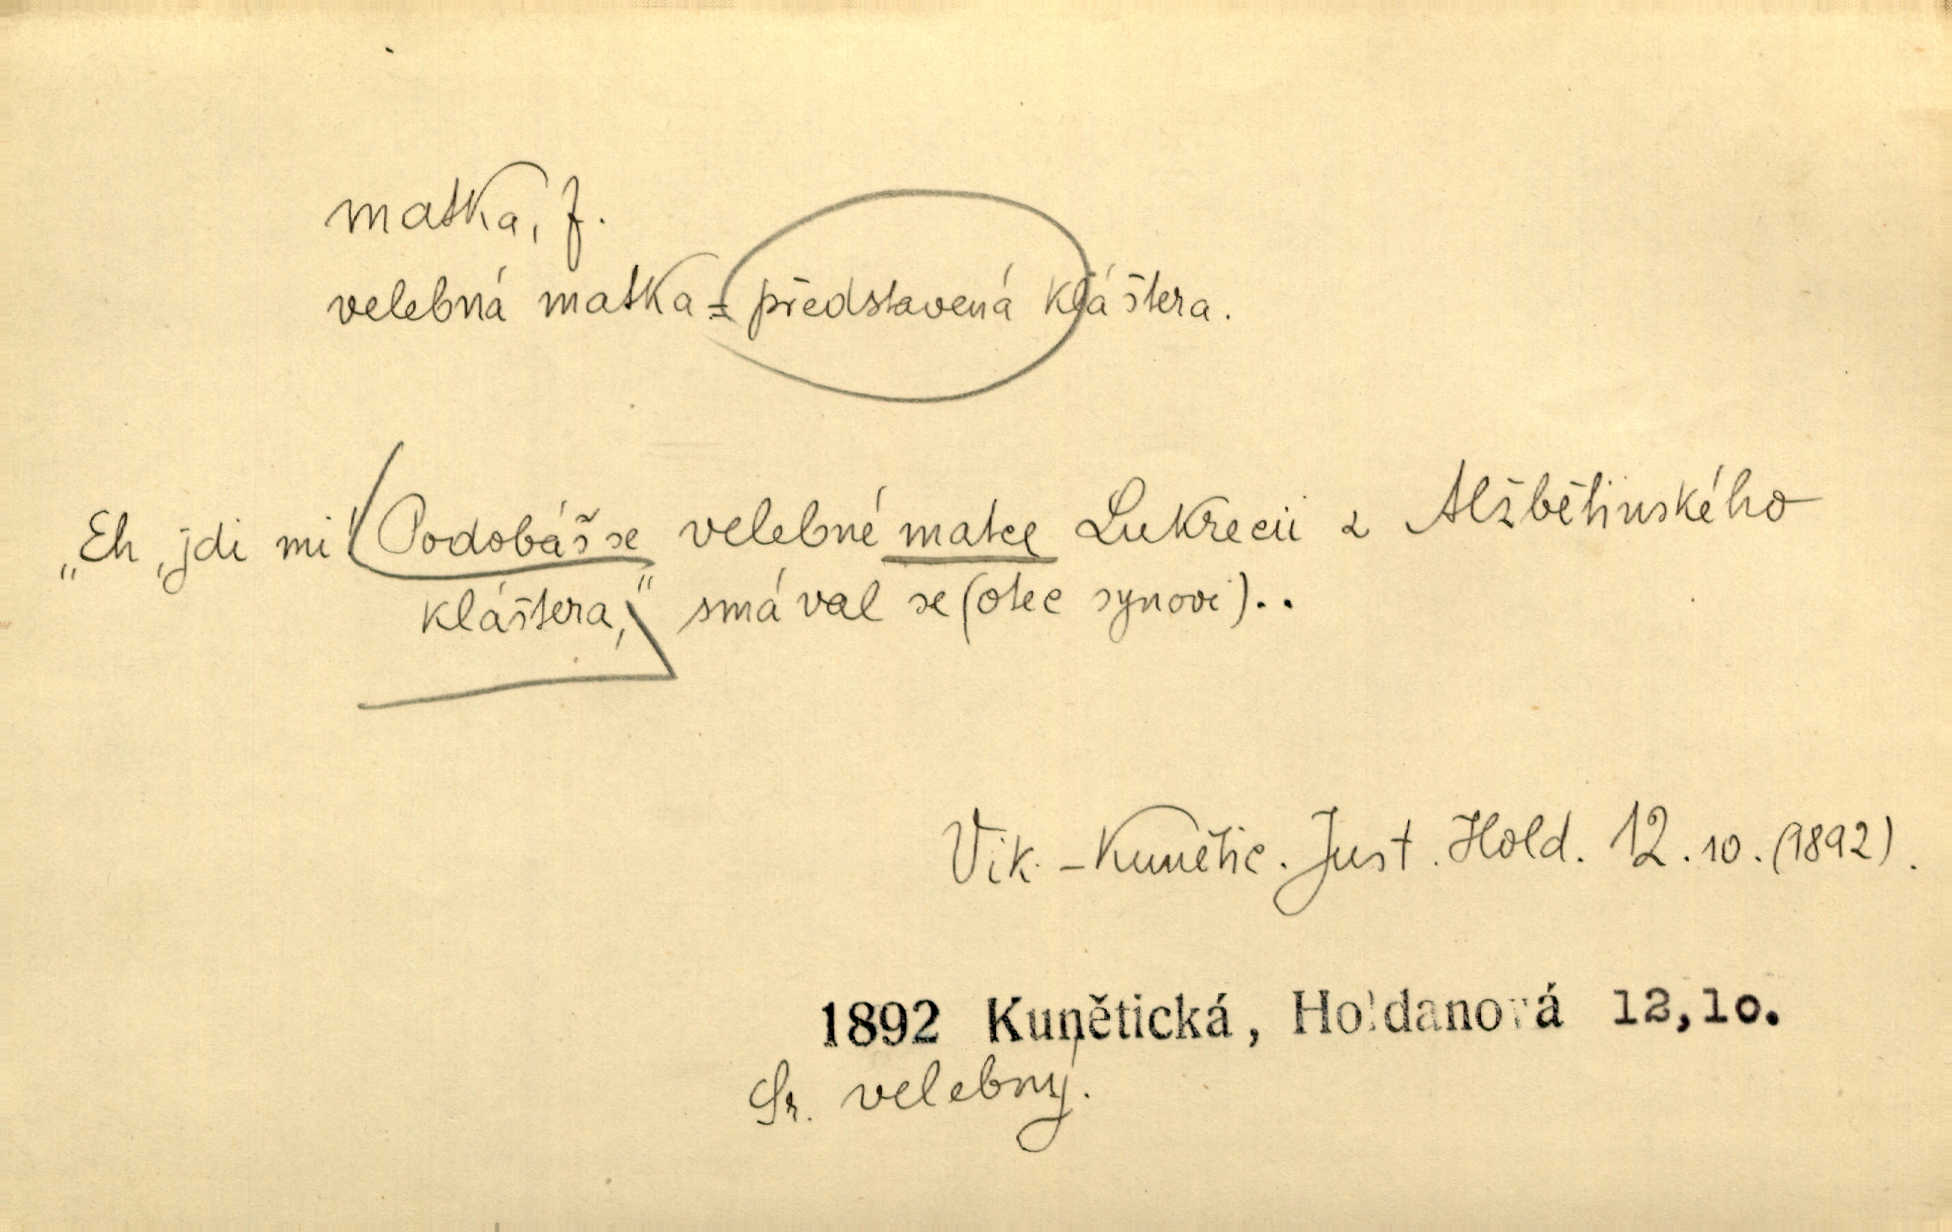 matka, f.
velebná matka = představená kláštera.
„Eh, jdi mi! Podobáš se velebné matce Lukrecii z Alžbětinského
kláštera," smával se (otec synovi)..
Vik. - Kunětic. Just. Hold. 12.10. (1892).
1892 Kunětická, Holdanová 12,10.
Sr. velebný.